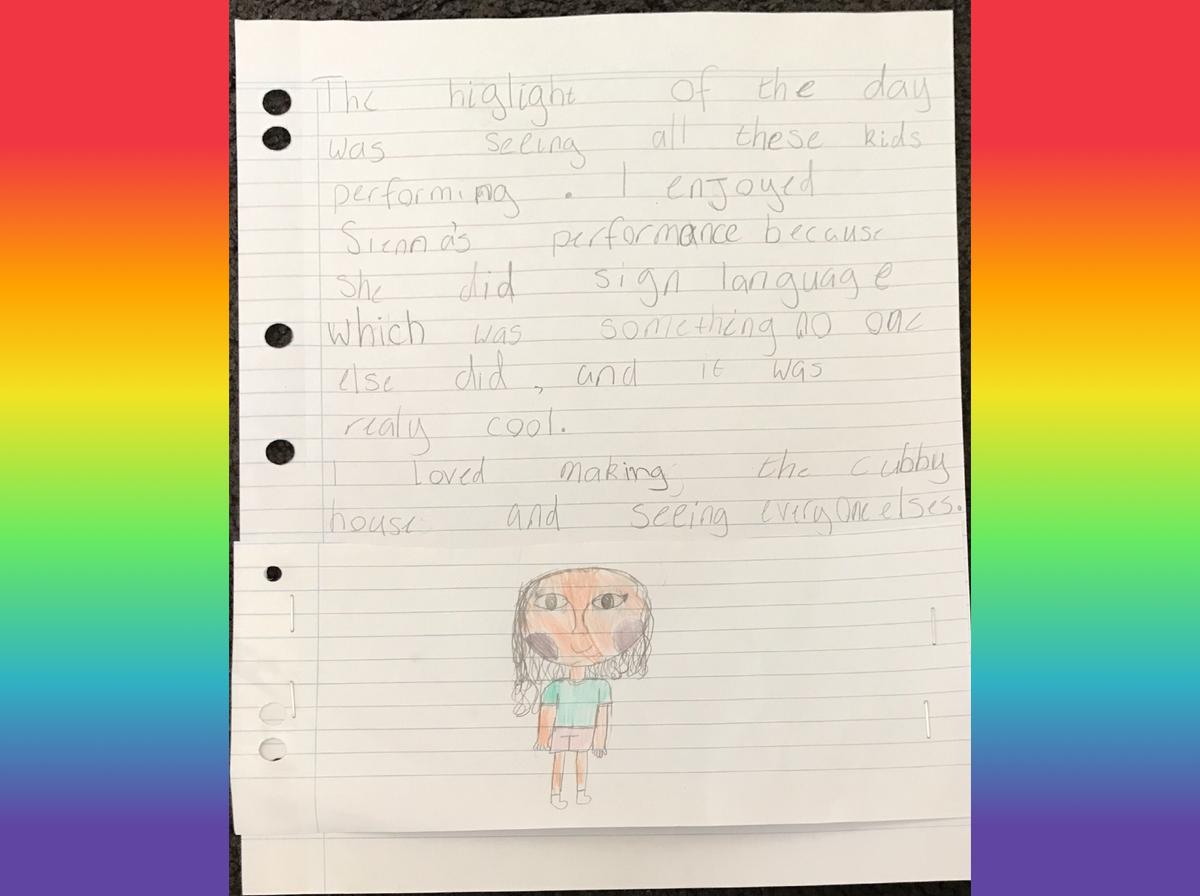 The higlight of the day
was seeing all these kids
performing . I enjoyed
Sienna's performance because
she did sign language
which was something no one
else did , and it was
realy cool.
I loved making the cubby
house and seeing everyone elses.